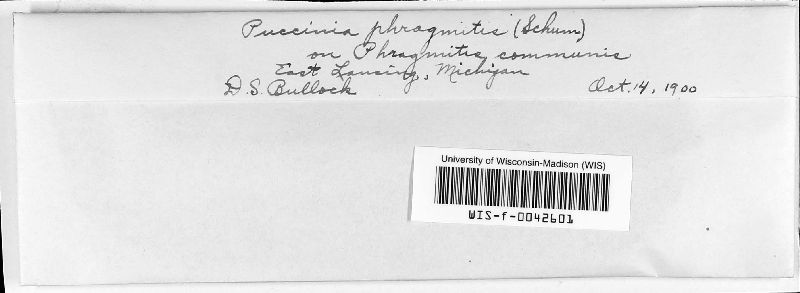 Puccinia phragmitis (Schum)
on Phragmitis communis
East Lansing, Michigan
D. S. Bullock Oct. 14, 1900
University of Wisconsin-Madison (WIS)
WIS-f-0042601